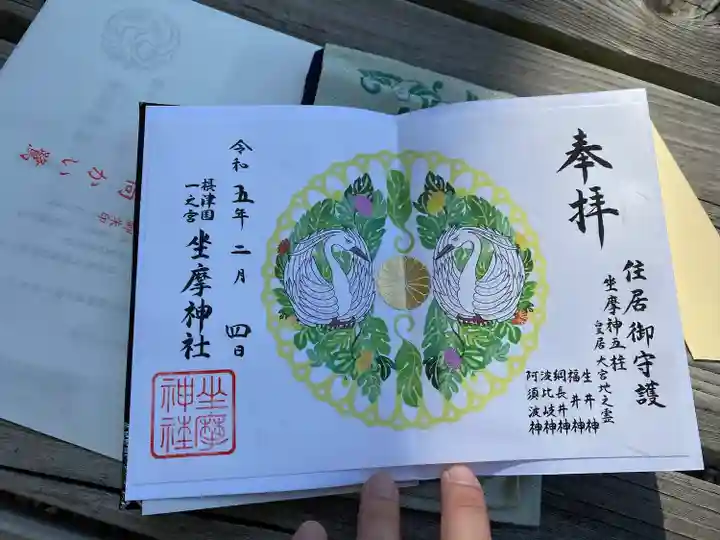 奉拝
住居御守護
坐摩神五柱
皇居 大宮地之霊
生井神
福井神
綱長井神
波比岐神
阿須波神
令和五年二月四日
摂津国
一之宮
坐摩神社
坐摩
神社
向かい鷺